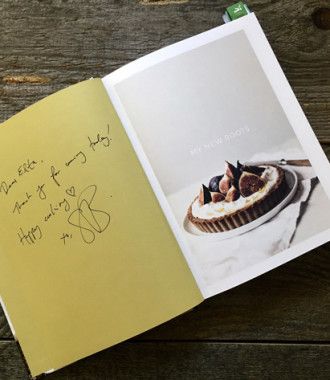 Dear Erika,
Thank you for coming today!
Happy cooking ♡
xo, SB.
MY NEW ROOTS